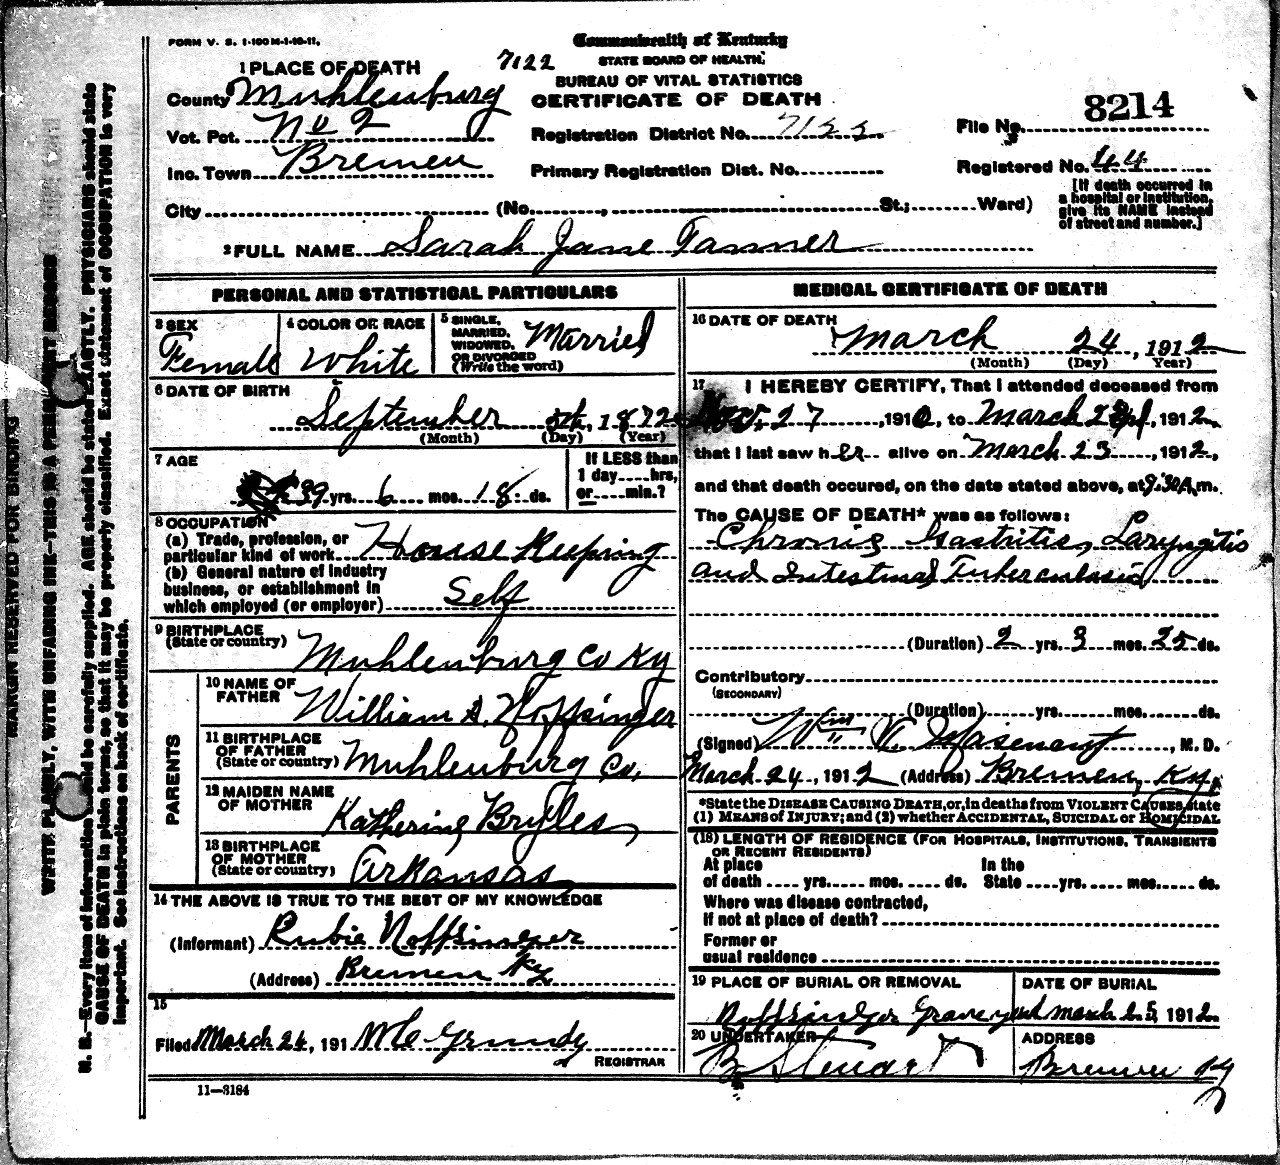 FORM V. S. 1-100M-1-10-11.
Commonwealth of Kentucky
7122
STATE BOARD OF HEALTH.
BUREAU OF VITAL STATISTICS
CERTIFICATE OF DEATH
1 PLACE OF DEATH
County Muhlenburg
Vot. Pct. No 2
Inc. Town Bremen
Registration District No.
Primary Registration Dist. No.
File No. 8214
Registered No. 44
[If death occurred in
a hospital or institution,
give its NAME instead
of street and number.]
City (No. , St.; Ward)
2 FULL NAME Sarah Jane Tanner
PERSONAL AND STATISTICAL PARTICULARS
3 SEX Female
4 COLOR OR RACE White
5 SINGLE, MARRIED, WIDOWED, OR DIVORCED (Write the word) Married
6 DATE OF BIRTH
September 5th, 1872
(Month) (Day) (Year)
7 AGE
39 yrs. 6 mos. 18 ds.
If LESS than
1 day hrs.
or min.?
8 OCCUPATION
(a) Trade, profession, or
particular kind of work House Keeping
(b) General nature of industry
business, or establishment in
which employed (or employer) Self
9 BIRTHPLACE
(State or country) Muhlenburg Co Ky
PARENTS
10 NAME OF
FATHER William A. Noffsinger
11 BIRTHPLACE
OF FATHER
(State or country) Muhlenburg Co,
12 MAIDEN NAME
OF MOTHER Katherine Bryles
13 BIRTHPLACE
OF MOTHER
(State or country) Arkansas
14 THE ABOVE IS TRUE TO THE BEST OF MY KNOWLEDGE
(Informant) Rubie Noffsinger
(Address) Bremen Ky
15
Filed March 24, 191 Grundy
REGISTRAR
11—3184
MEDICAL CERTIFICATE OF DEATH
16 DATE OF DEATH
March 24, 1912
(Month) (Day) (Year)
17 I HEREBY CERTIFY, That I attended deceased from
27, 1910, to March, 1912,
that I last saw her alive on March 23, 1912,
and that death occured, on the date stated above, at 9:30 A.m.
The CAUSE OF DEATH* was as follows:
Chronic Gastritis, Laryngitis
and Intestinal Tuberculosis
(Duration) 2 yrs. 3 mos. 25 ds.
Contributory
(SECONDARY)
(Duration) yrs. mos. ds.
(Signed) Wm, M. D.
March 24, 1912 (Address) Bremen, Ky.
*State the DISEASE CAUSING DEATH, or, in deaths from VIOLENT CAUSES, state
(1) MEANS of INJURY; and (2) whether ACCIDENTAL, SUICIDAL or HOMICIDAL
(18) LENGTH OF RESIDENCE (FOR HOSPITALS, INSTITUTIONS, TRANSIENTS
OR RECENT RESIDENTS)
At place In the
of death yrs. mos. ds. State yrs. mos. ds.
Where was disease contracted,
if not at place of death?
Former or
usual residence
19 PLACE OF BURIAL OR REMOVAL
Noffsinger Graveyard
DATE OF BURIAL
March 25, 1912
20 UNDERTAKER
B Stewart
ADDRESS
Bremen Ky
MARGIN RESERVED FOR BINDING
WRITE PLAINLY, WITH UNFADING INK—THIS IS A PERMANENT RECORD
N. B.—Every item of information should be carefully supplied. AGE should be stated EXACTLY. PHYSICIANS should state
CAUSE OF DEATH in plain terms, so that it may be properly classified. Exact statement of OCCUPATION is very
important. See instructions on back of certificate.